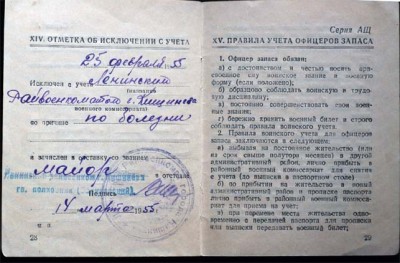 XIV. ОТМЕТКА ОБ ИСКЛЮЧЕНИИ С УЧЕТА
25 февраля 55
Исключен с учета Ленинским
Райвоенкоматом г. Кишинева
военного комиссариата
по причине по болезни
и зачислен в отставку со званием
майор
в отставке
Подпись
14 марта 1955 г.
28
Серия АЩ
XV. ПРАВИЛА УЧЕТА ОФИЦЕРОВ ЗАПАСА
1. Офицер запаса обязан:
а) с достоинством и честью носить присвоенное ему воинское звание и военную форму (если положено);
б) образцово соблюдать воинскую и трудовую дисциплину;
в) постоянно совершенствовать свои военные знания;
г) бережно хранить военный билет и строго соблюдать правила воинского учета.
2. Правила воинского учета для офицеров запаса заключаются в следующем:
а) выбывая на постоянное жительство (или на срок свыше полутора месяцев) в другой административный район, лично прибыть в районный военный комиссариат для снятия с учета (до выписки в паспортном столе)
б) по прибытии на жительство в новый административный район и прописке паспорта лично прибыть в районный военный комиссариат для приема на учет;
в) при перемене места жительства одновременно с передачей паспорта для прописки или выписки передавать военный билет;
29